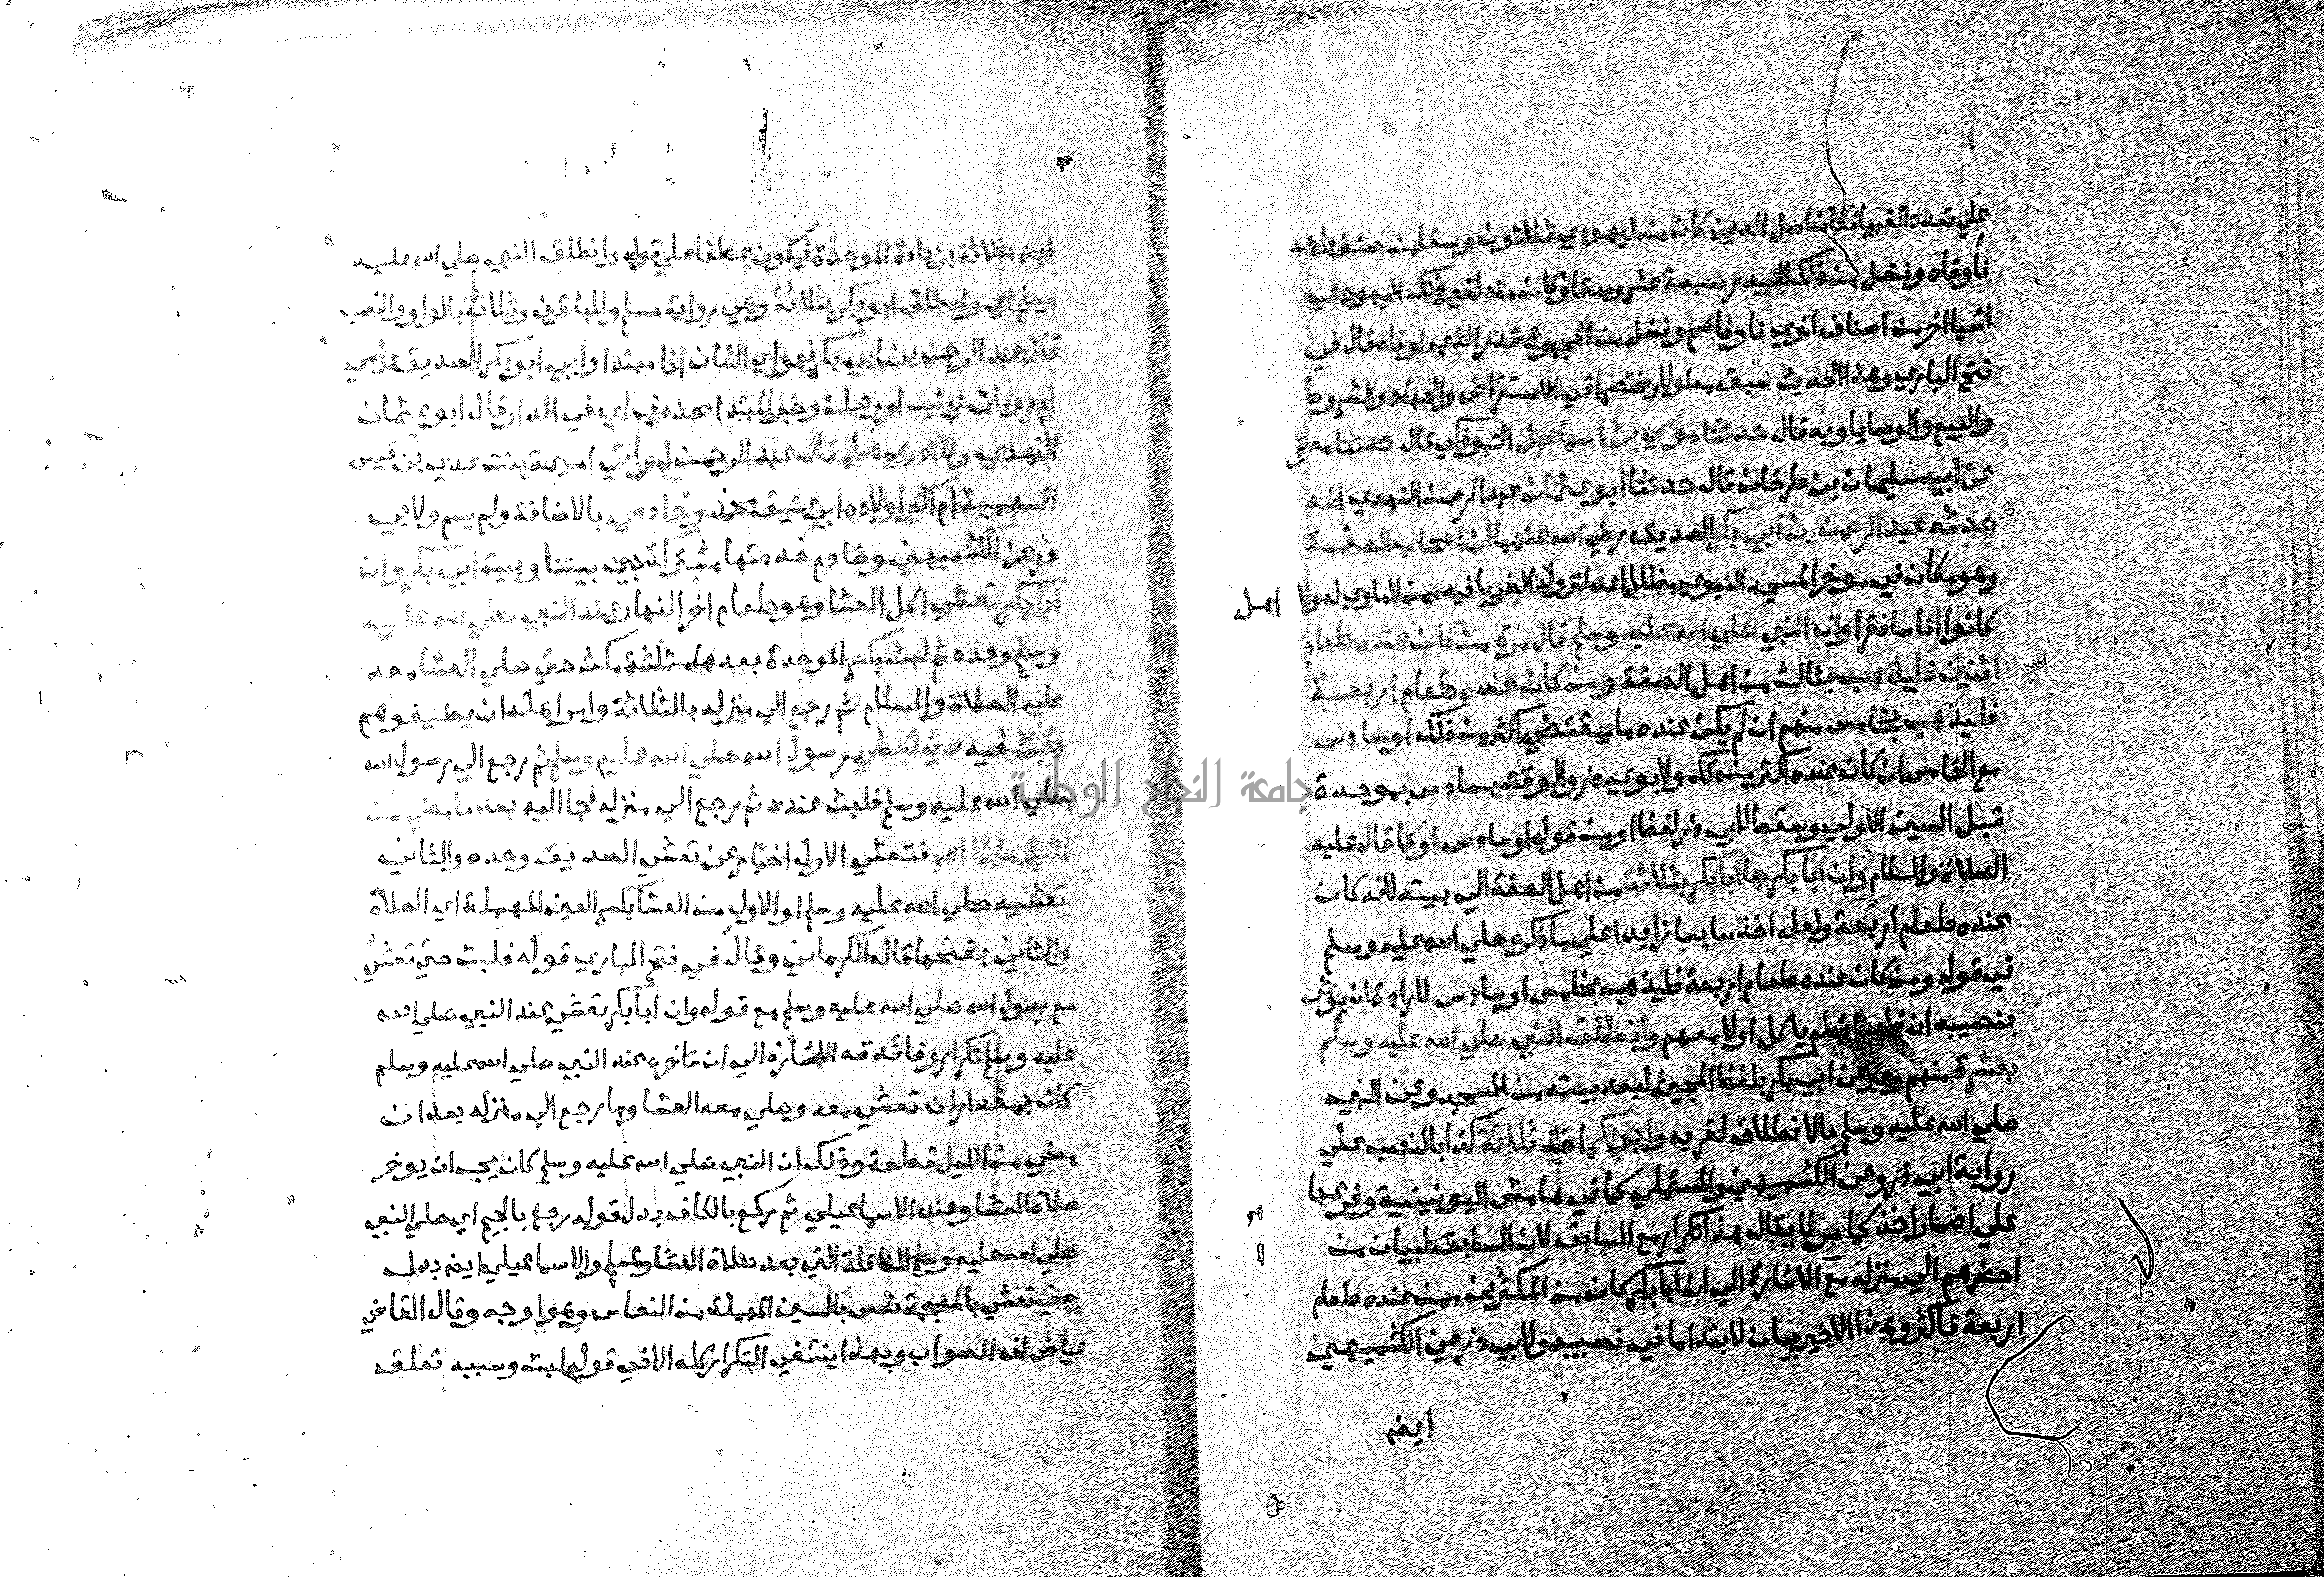 علي تعدد الغرما فكان اصل الدين كان منه ليهودي ثلاثون وسقا من صنف واحد
فأوفاه وفضل من ذلك البيدر سبعة عشر وسقا وكان منه لغير ذلك اليهودي
اشيا اخر من اصناف اخري فاوفاهم وفضل من المجموع قدر الذي اوفاه قال في
فتح الباري وهذا الحديث سبق مطولا ومختصرا في الاستقراض والجهاد والشروط
والبيع والوصايا وبه قال حدثنا موسي بن اسماعيل التبوذكي قال حدثنا معتمر
عن ابيه سليمان بن طرخان قال حدثنا ابو عثمان عبد الرحمن النهدي انه
حدثه عبد الرحمن بن ابي بكر الصديق رضي الله عنهما ان اصحاب الصفة
وهو مكان في موخر المسجد النبوي مظلل اعد لنزول الغربا فيه من لا ماوي له ولا اهل
كانوا اناسا فقرا وان النبي صلي الله عليه وسلم قال مرة من كان عنده طعام
اثنين فليذهب بثالث من اهل الصفة ومن كان عنده طعام اربعة
فليذهب بخامس منهم ان لم يكن عنده ما يقتضي اكثر من ذلك او سادس
مع الخامس ان كان عنده اكثر من ذلك ولابوي ذر والوقت بسادس بموحدة
قبل السين الاولي وسقط لابي ذر لفظ او من قوله او سادس او كما قال عليه
الصلاة والسلام وان ابا بكر جا ابا بكر بثلاثة من اهل الصفة الي بيته لانه كان
عنده طعام اربعة ولعله اخذ سابعا زايدا علي ما ذكره صلي الله عليه وسلم
في قوله ومن كان عنده طعام اربعة فليذهب بخامس او سادس لارادة ان يوثر
بنصيبه ان لم ياكل اولا معهم وانطلق النبي صلي الله عليه وسلم
بعشرة منهم وعبر عن ابي بكر بلفظ المجئ لبعد بيته من المسجد وعن النبي
صلي الله عليه وسلم بالانطلاق لقربه وابو بكر اخذ ثلاثة كذا بالنصب علي
رواية ابي ذر وعن الكشميهني والمستملي كما في هامش اليونينية وفرعها
علي اضمار اخذ كما مر لا يقال هذا تكرار مع السابق لان السابق لبيان من
احضرهم الي منزله مع الاشارة الي ان ابا بكر كان من المكثرين ممن عنده طعام
اربعة فاكثر وهذا الاخير بيان لابتدا ما في نصيبه ولابي ذر عن الكشميهني
ايض
ايض بثلاثة بزيادة الموحدة فيكون عطفا علي قوله وانطلق النبي صلي الله عليه
وسلم اي وانطلق ابو بكر بثلاثة وهي رواية مسلم وللباقين وثلاثة بالواو والنصب
قال عبد الرحمن بن ابي بكر فهو اي الشان انا مبتدا وابي ابو بكر الصديق وامي
ام رومان زينب او وعلة وخبر المبتدا محذوف اي في الدار قال ابو عثمان
النهدي ولا ادري هل قال عبد الرحمن امراتي اميمة بنت عدي بن قيس
السهمية ام اكبر اولاده ابي عتيق محمد وخادمي بالاضافة ولم يسم ولابي
ذر عن الكشميهني وخادم خدمتها مشتركة بين بيتنا وبيت ابي بكر وان
ابا بكر تعشي اكل العشا وهو طعام اخر النهار عند النبي صلي الله عليه
وسلم وحده ثم لبث بكسر الموحدة بعدها مثلثة مكث حتي صلي العشا معه
عليه الصلاة والسلام ثم رجع الي منزله بالثلاثة وامر اهله ان يضيفوهم
فلبث فيه حتي تعشي رسول الله صلي الله عليه وسلم ثم رجع الي رسول الله
صلي الله عليه وسلم فلبث عنده ثم رجع الي منزله فجا اليه بعد ما مضي من
الليل ما شا الله فتعشي الاول اخبار عن تعشي الصديق وحده والثاني
تعشيه صلي الله عليه وسلم او الاول من العشا بكسر العين المهملة اي الصلاة
والثاني بفتحها قاله الكرماني وقال في فتح الباري قوله فلبث حتي تعشي
مع رسول الله صلي الله عليه وسلم مع قوله وان ابا بكر تعشي عند النبي صلي الله
عليه وسلم تكرار وفائدته الاشارة الي ان تاخره عند النبي صلي الله عليه وسلم
كان بمقدار ان تعشي معه وصلي معه العشا وما رجع الي منزله بعد ان
مضي من الليل قطعة وذلك ان النبي صلي الله عليه وسلم كان يحب ان يوخر
صلاة العشا وعند الاسماعيلي ثم ركع بالكاف بدل قوله رجع بالجيم اي صلي النبي
صلي الله عليه وسلم النافلة التي بعد صلاة العشا ولمسلم والاسماعيلي ايض بدل
حتي تعشي بالمعجمة نعس بالسين المهملة من النعاس وهو اوجه وقال القاضي
عياض انه الصواب وبهذا ينتفي التكرار كله الا في قوله لبث وسببه تعلق
جامعة النجاح الوطنية